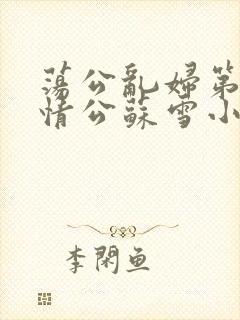 蕩公亂婦第
情公蘇雪小
李閑魚